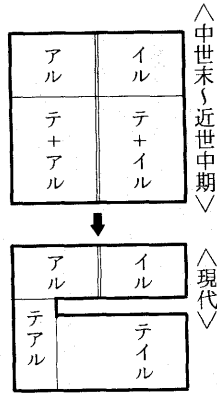 〈中世末～近世中期〉
イル
アル
テ＋イル
テ＋アル
〈現代〉
イル
アル
テイル
テアル